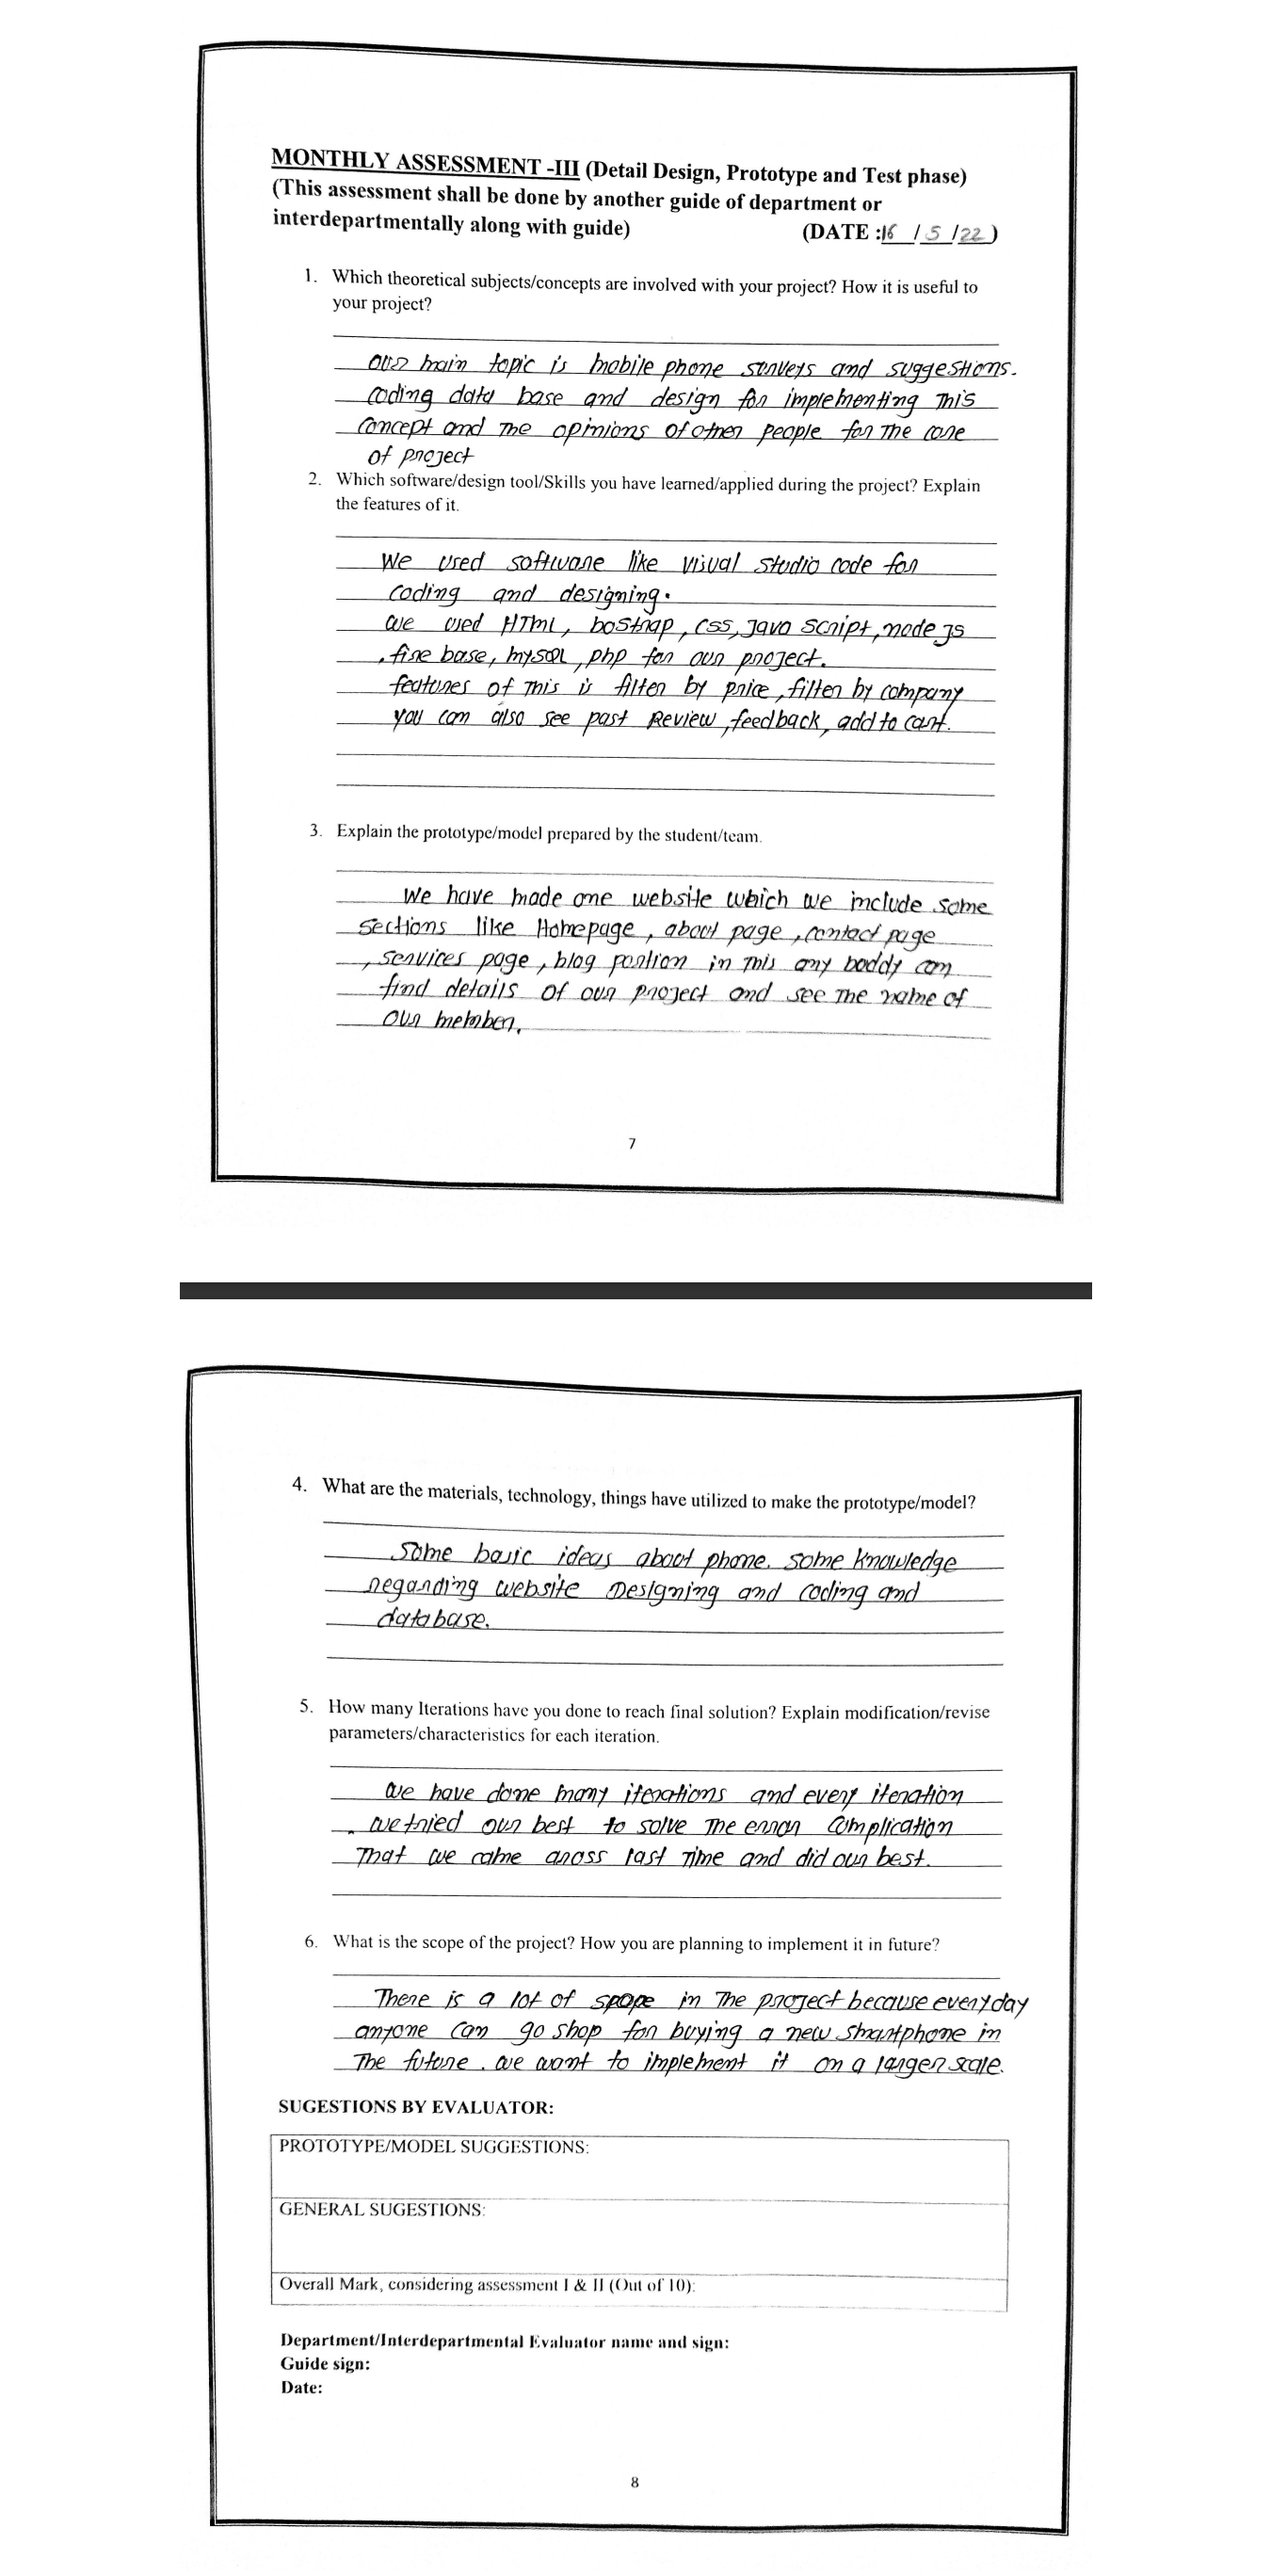 MONTHLY ASSESSMENT -III (Detail Design, Prototype and Test phase)
(This assessment shall be done by another guide of department or
interdepartmentally along with guide) (DATE :16 / 5 /22 )
1. Which theoretical subjects/concepts are involved with your project? How it is useful to
your project?
our main topic is mobile phone survers and suggestions.
coding data base and design for implementing This
concept and The opinions of other people for The core
of project
2. Which software/design tool/Skills you have learned/applied during the project? Explain
the features of it.
We used software like visual studio code for
coding and designing.
we used HTML, bostrap, css, java script, node js
, fire base, mysQL, php for our project.
features of This is filter by price, filter by company
you can also see past Review, feedback, add to cart.
3. Explain the prototype/model prepared by the student/team.
We have made one website which we include some
sections like Homepage, about page, contact page
, services page, blog portion in This any boddy can
find details of our project and see The name of
our member.
7
4. What are the materials, technology, things have utilized to make the prototype/model?
Some basic ideas about phone. some knowledge
regarding website Designing and coding and
database.
5. How many Iterations have you done to reach final solution? Explain modification/revise
parameters/characteristics for each iteration.
we have done many iterations and every iteration
we tried our best to solve The error complication
That we came aross last Time and did our best.
6. What is the scope of the project? How you are planning to implement it in future?
There is a lot of spope in The project because everyday
anyone can go shop for buying a new smartphone in
The future. we want to implement it on a larger scale.
SUGESTIONS BY EVALUATOR:
PROTOTYPE/MODEL SUGGESTIONS:
GENERAL SUGESTIONS:
Overall Mark, considering assessment I & II (Out of 10):
Department/Interdepartmental Evaluator name and sign:
Guide sign:
Date:
8